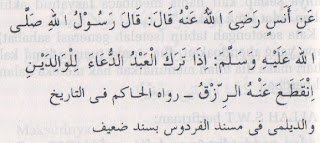 عَنْ أَنَسٍ رَضِىَ اللهُ عَنْهُ قَالَ: قَالَ رَسُوْلُ اللهِ صَلَّى
اللهُ عَلَيْهِ وَسَلَّمَ: إِذَا تَرَكَ الْعَبْدُ الدُّعَاءَ لِلْوَالِدَيْنِ
اِنْقَطَعَ عَنْهُ الرِّزْقُ ــ رواه الحاكم فى التاريخ
والديلمى فى مسند الفردوس بسند ضعيف